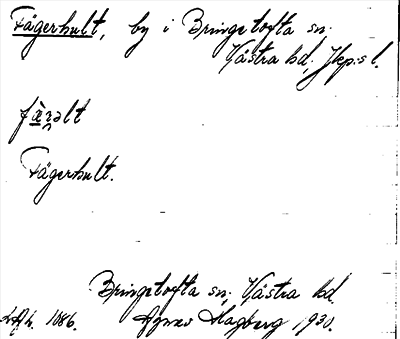 Fägerhult, by i Bringetofta sn.
Västra hd, Jkp:s l.
Fägerhult.
Bringetofta sn, Västra hd.
1086. Agnes Hagberg 1930.